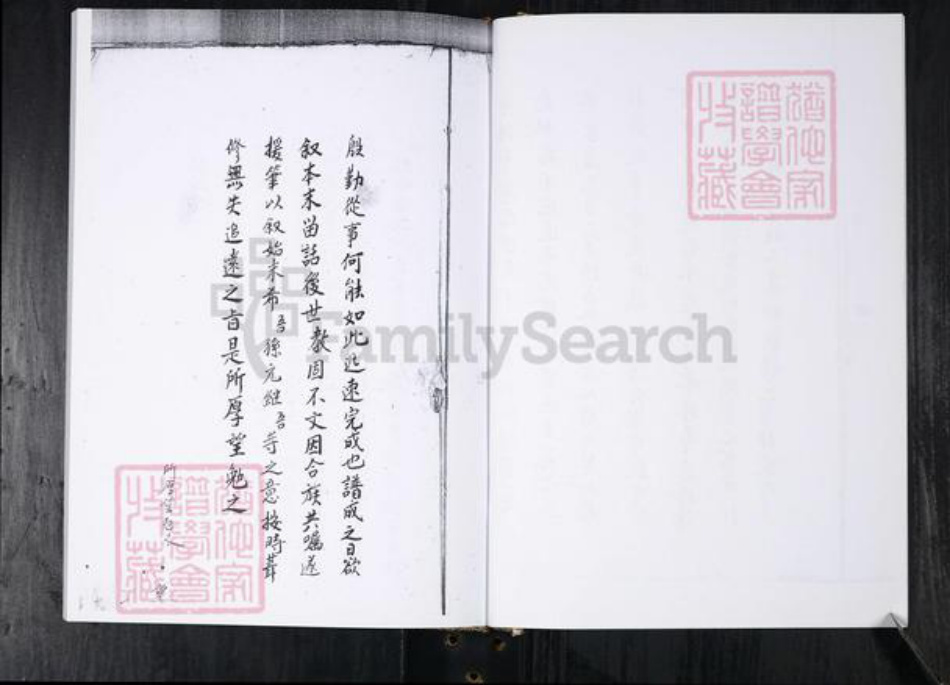 殷勤從事何能如此迅速完成也譜成之日欲
叙本末留話後世敎固不文因合族共囑遂
援筆以叙始末希吾孫克繼吾等之意按時葺
修無失追遠之旨是所厚望勉之
FamilySearch
譜學會
收藏
譜學會
收藏